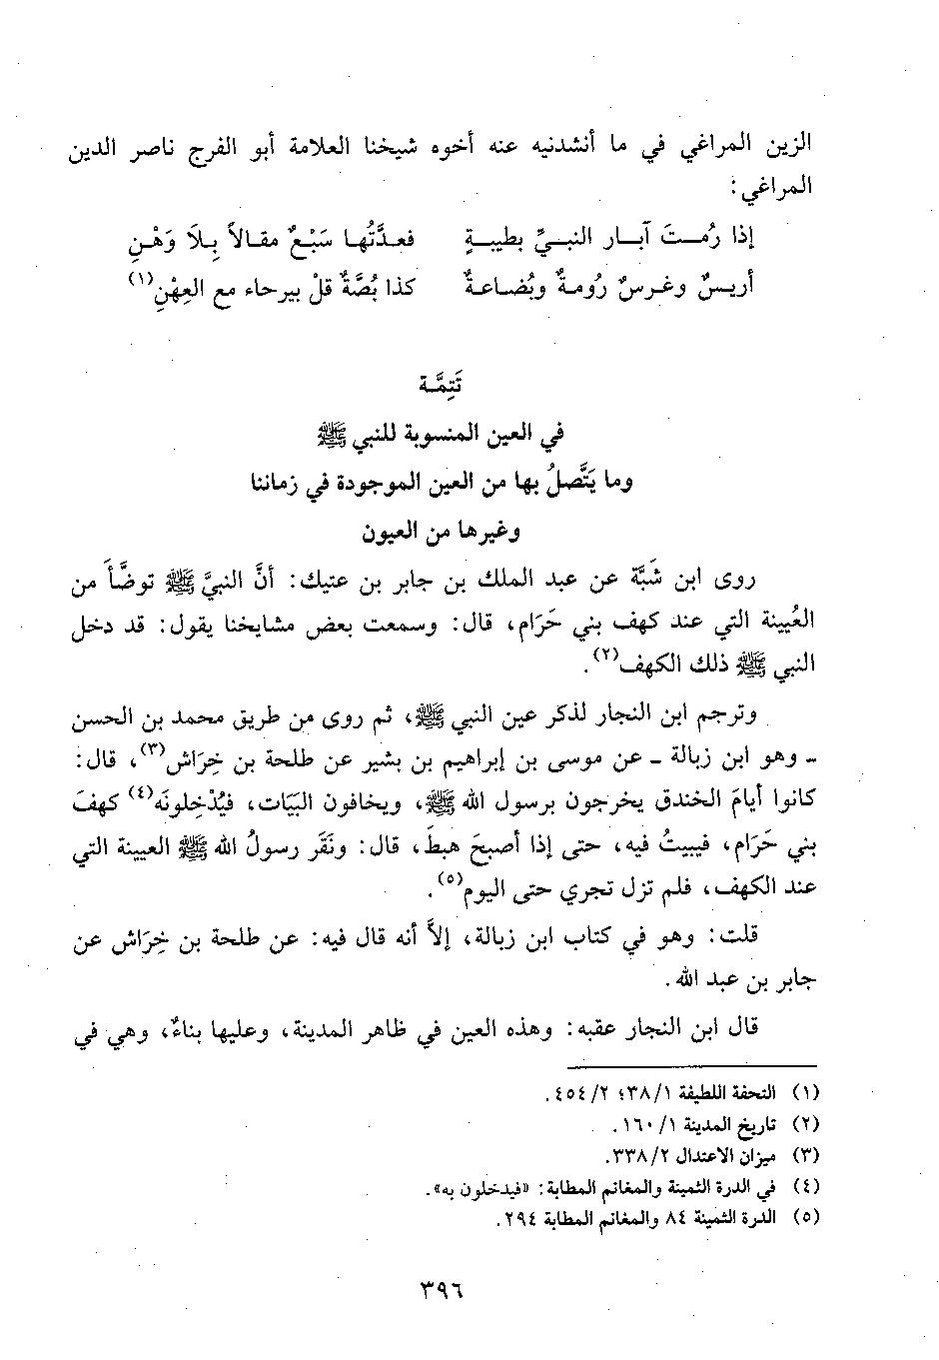 الزين المراغي في ما أنشدنيه عنه أخوه شيخنا العلامة أبو الفرج ناصر الدين
المراغي:
إذا رُمـتَ آبـار النبـيِّ بطيبـةٍ فعـدَّتُهـا سَبْـعٌ مقـالاً بِـلاَ وَهْـنِ
أريـسٌ وغـرسٌ رُومـةٌ وبُضـاعـةٌ كذا بُصَّةٌ قلْ بيرحاء مع العِهْنِ(١)
تَتِمَّـة
في العين المنسوبة للنبي ﷺ
وما يَتَّصلُ بها من العين الموجودة في زماننا
وغيرها من العيون
روى ابن شَبَّة عن عبد الملك بن جابر بن عتيك: أنَّ النبيَّ ﷺ توضَّأَ من
العُيينة التي عند كهف بني حَرَام، قال: وسمعت بعض مشايخنا يقول: قد دخل
النبي ﷺ ذلك الكهف(٢).
وترجم ابن النجار لذكر عين النبي ﷺ، ثم روى من طريق محمد بن الحسن
ـ وهو ابن زبالة ـ عن موسى بن إبراهيم بن بشير عن طلحة بن خِرَاش(٣)، قال:
كانوا أيامَ الخندق يخرجون برسول الله ﷺ، ويخافون البَيَات، فيُدْخِلونَه(٤) كهفَ
بني حَرَام، فيبيتُ فيه، حتى إذا أصبحَ هبطَ، قال: ونَقَر رسولُ الله ﷺ العيينة التي
عند الكهف، فلم تزل تجري حتى اليوم(٥).
قلت: وهو في كتاب ابن زبالة، إلاَّ أنه قال فيه: عن طلحة بن خِرَاش عن
جابر بن عبد الله.
قال ابن النجار عقبه: وهذه العين في ظاهر المدينة، وعليها بناءٌ، وهي في
(١) التحفة اللطيفة ٣٨/١؛ ٤٥٤/٢.
(٢) تاريخ المدينة ١٦٠/١.
(٣) ميزان الاعتدال ٣٣٨/٢.
(٤) في الدرة الثمينة والمغانم المطابة: «فيدخلون به».
(٥) الدرة الثمينة ٨٤ والمغانم المطابة ٢٩٤.
٣٩٦